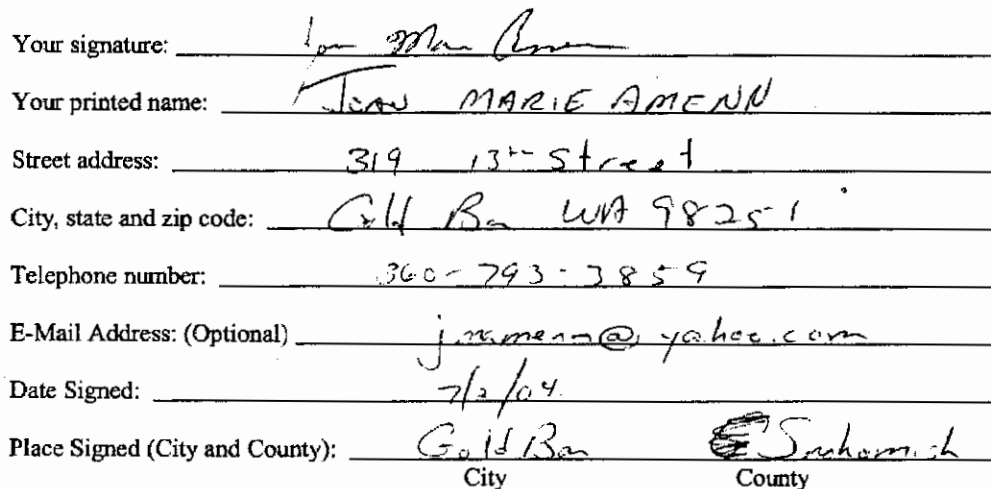 Your signature:
Your printed name: JEAN MARIE AMENN
Street address: 319 13th Street
City, state and zip code: Gold Bar WA 98251
Telephone number: 360-793-3859
E-Mail Address: (Optional) jmamenn@yahoo.com
Date Signed: 7/2/04
Place Signed (City and County): Gold Bar Snohomish
City County